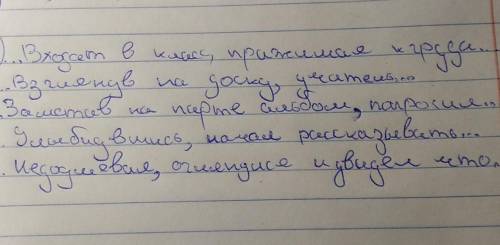 )...Входит в класс, прижимая к груди..
..Взглянув на доску, учитель...
.Заметив на парте альбом, попросил..
.Улыбнувшись, начал рассказывать...
.Недоумевая, огляделся и увидел что.